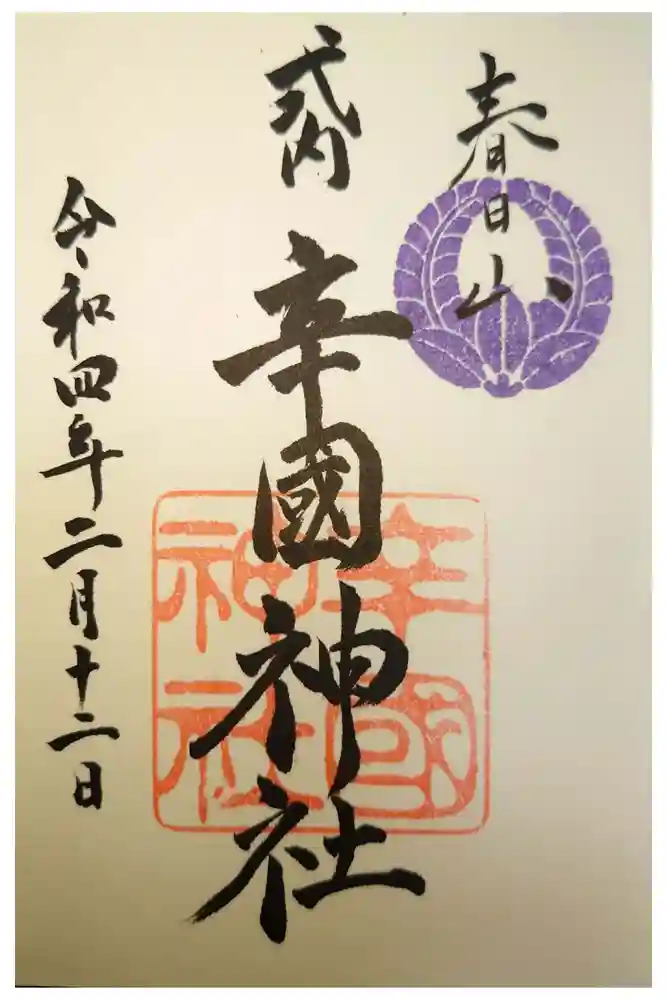 春日山
式内
辛國神社
辛國神社
令和四年二月十二日